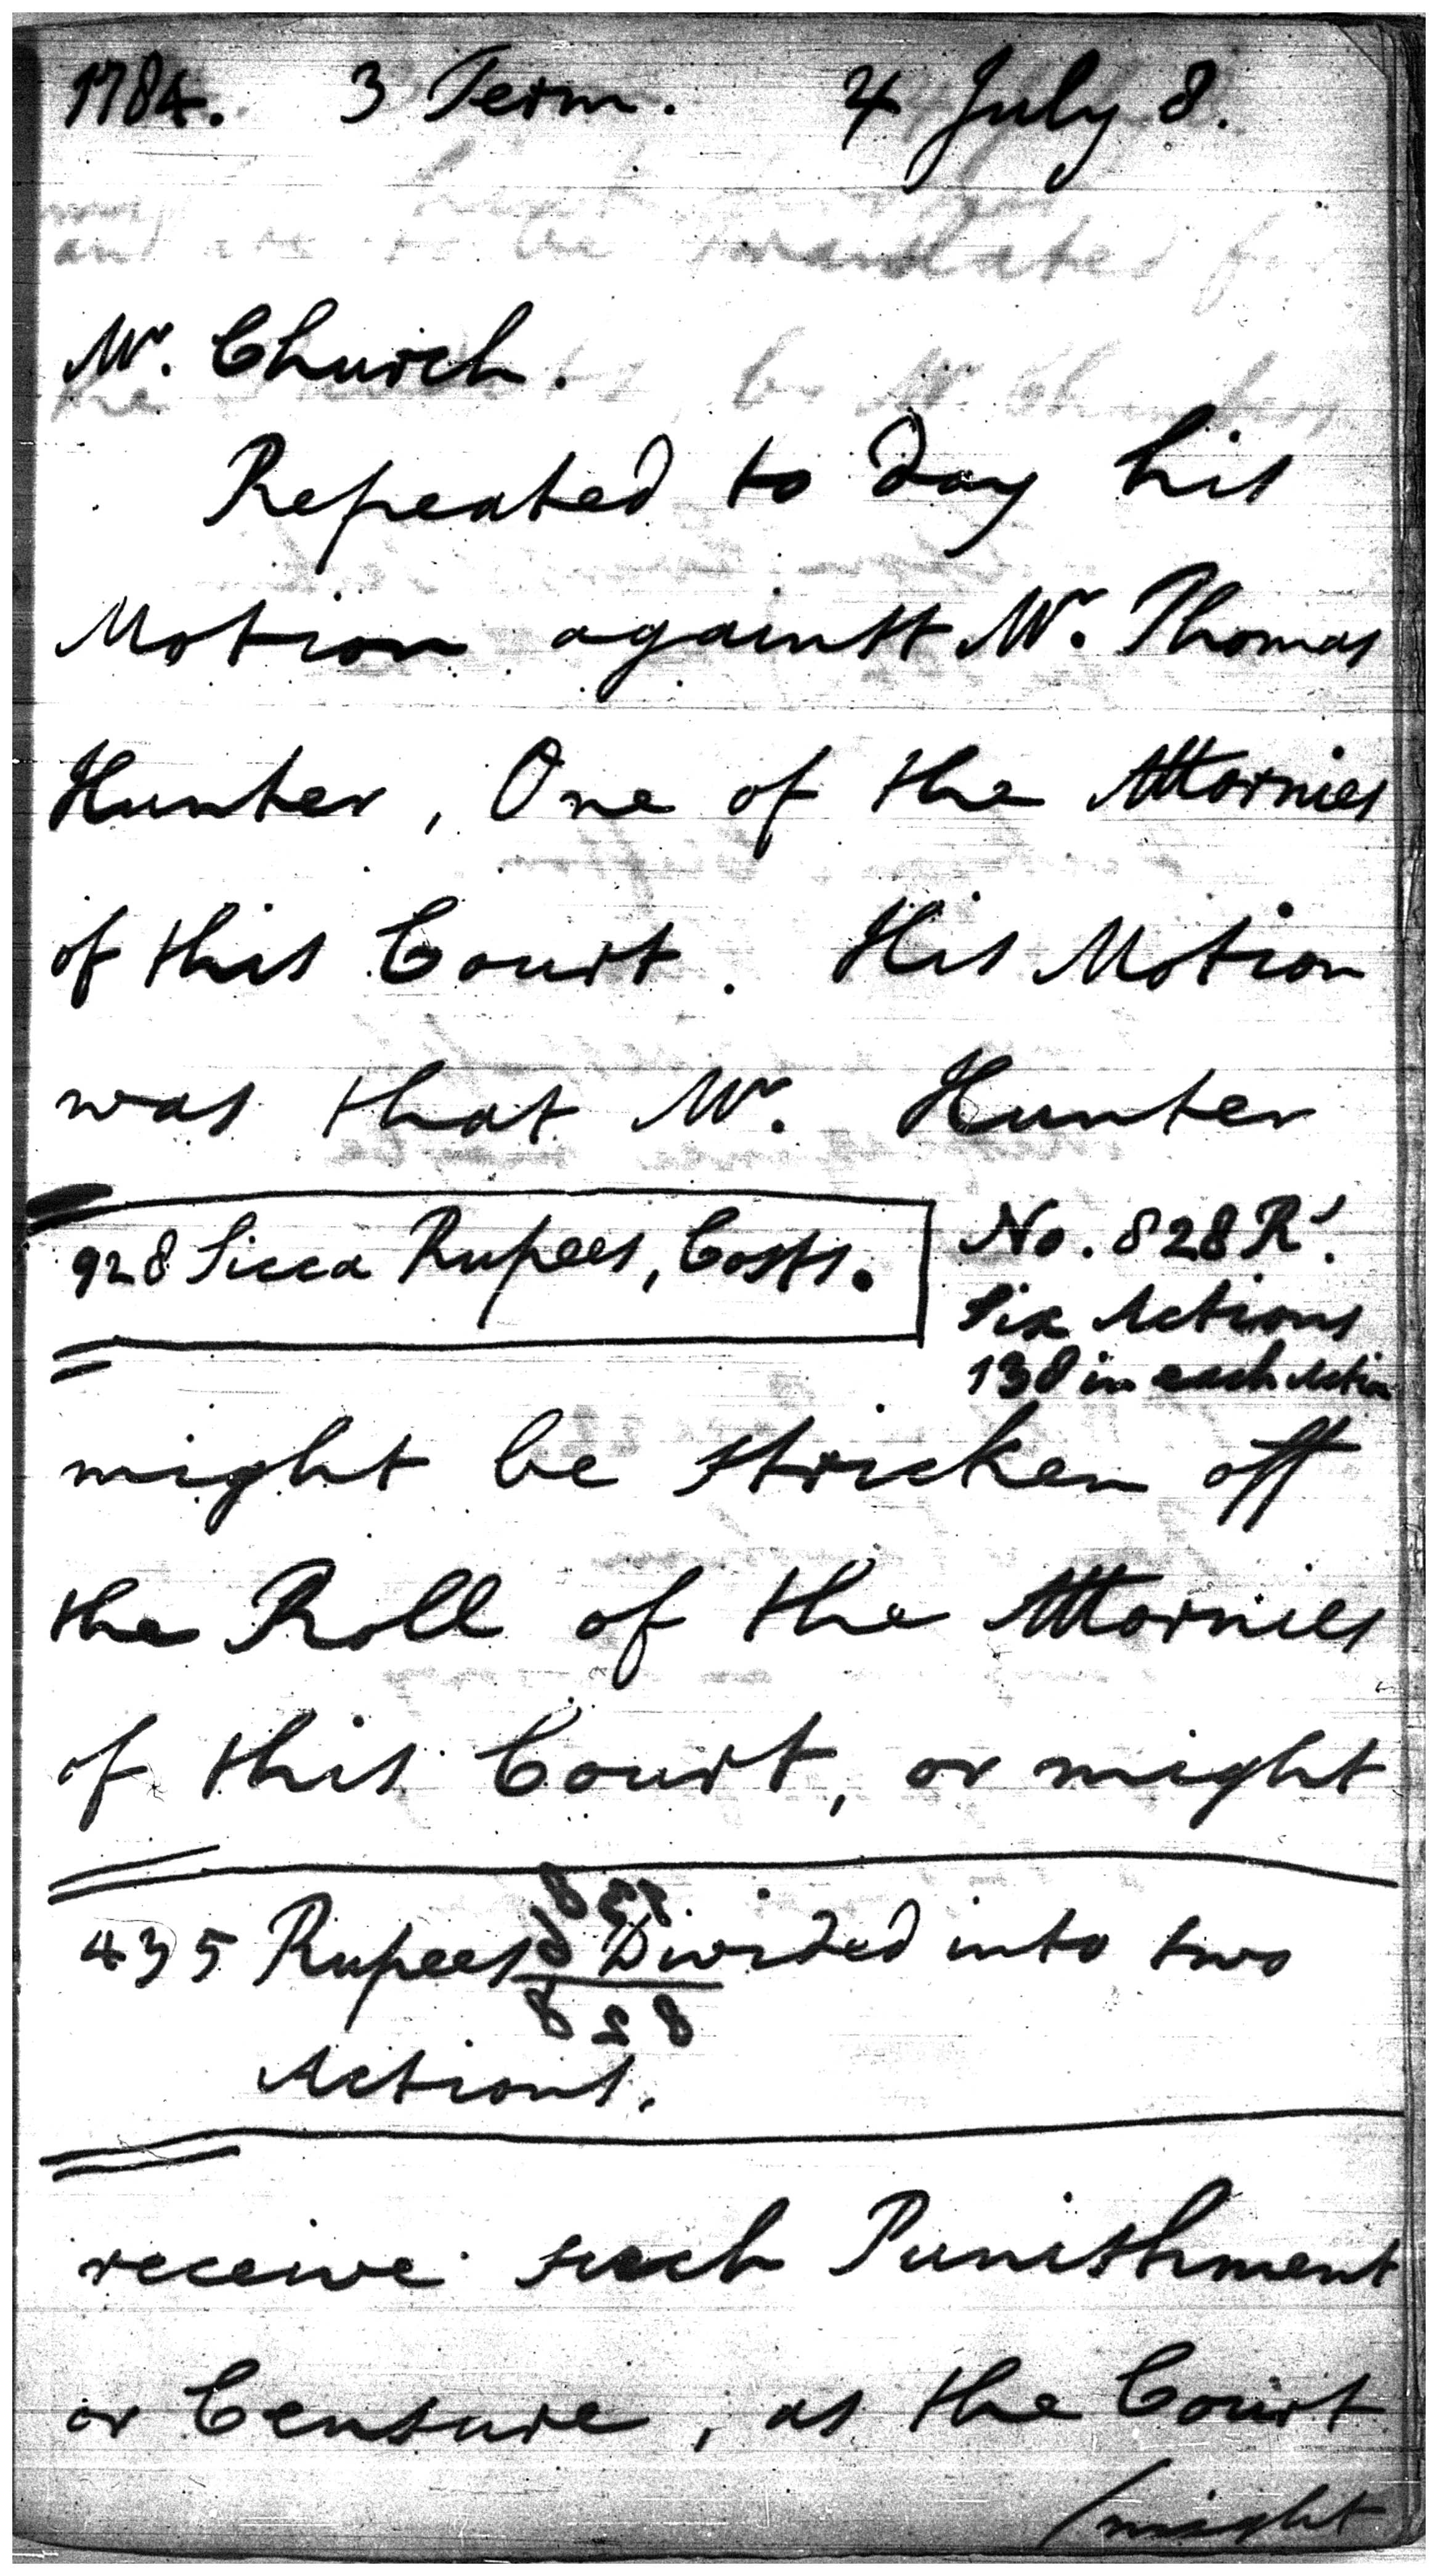 1784. 3 Term. 4 July 8.
Mr. Church.
Repeated to day his
Motion against Mr. Thomas
Hunter, One of the Attornies
of this Court. His Motion
was that Mr. Hunter
928 Sicca Rupees, Costs.
No. 828 Rs.
Six Actions
138 in each Action
might be stricken off
the Roll of the Attornies
of this Court, or might
138
6
435 Rupees Divided into two
828
Actions.
receive such Punishment
or Censure, as the Court
/might